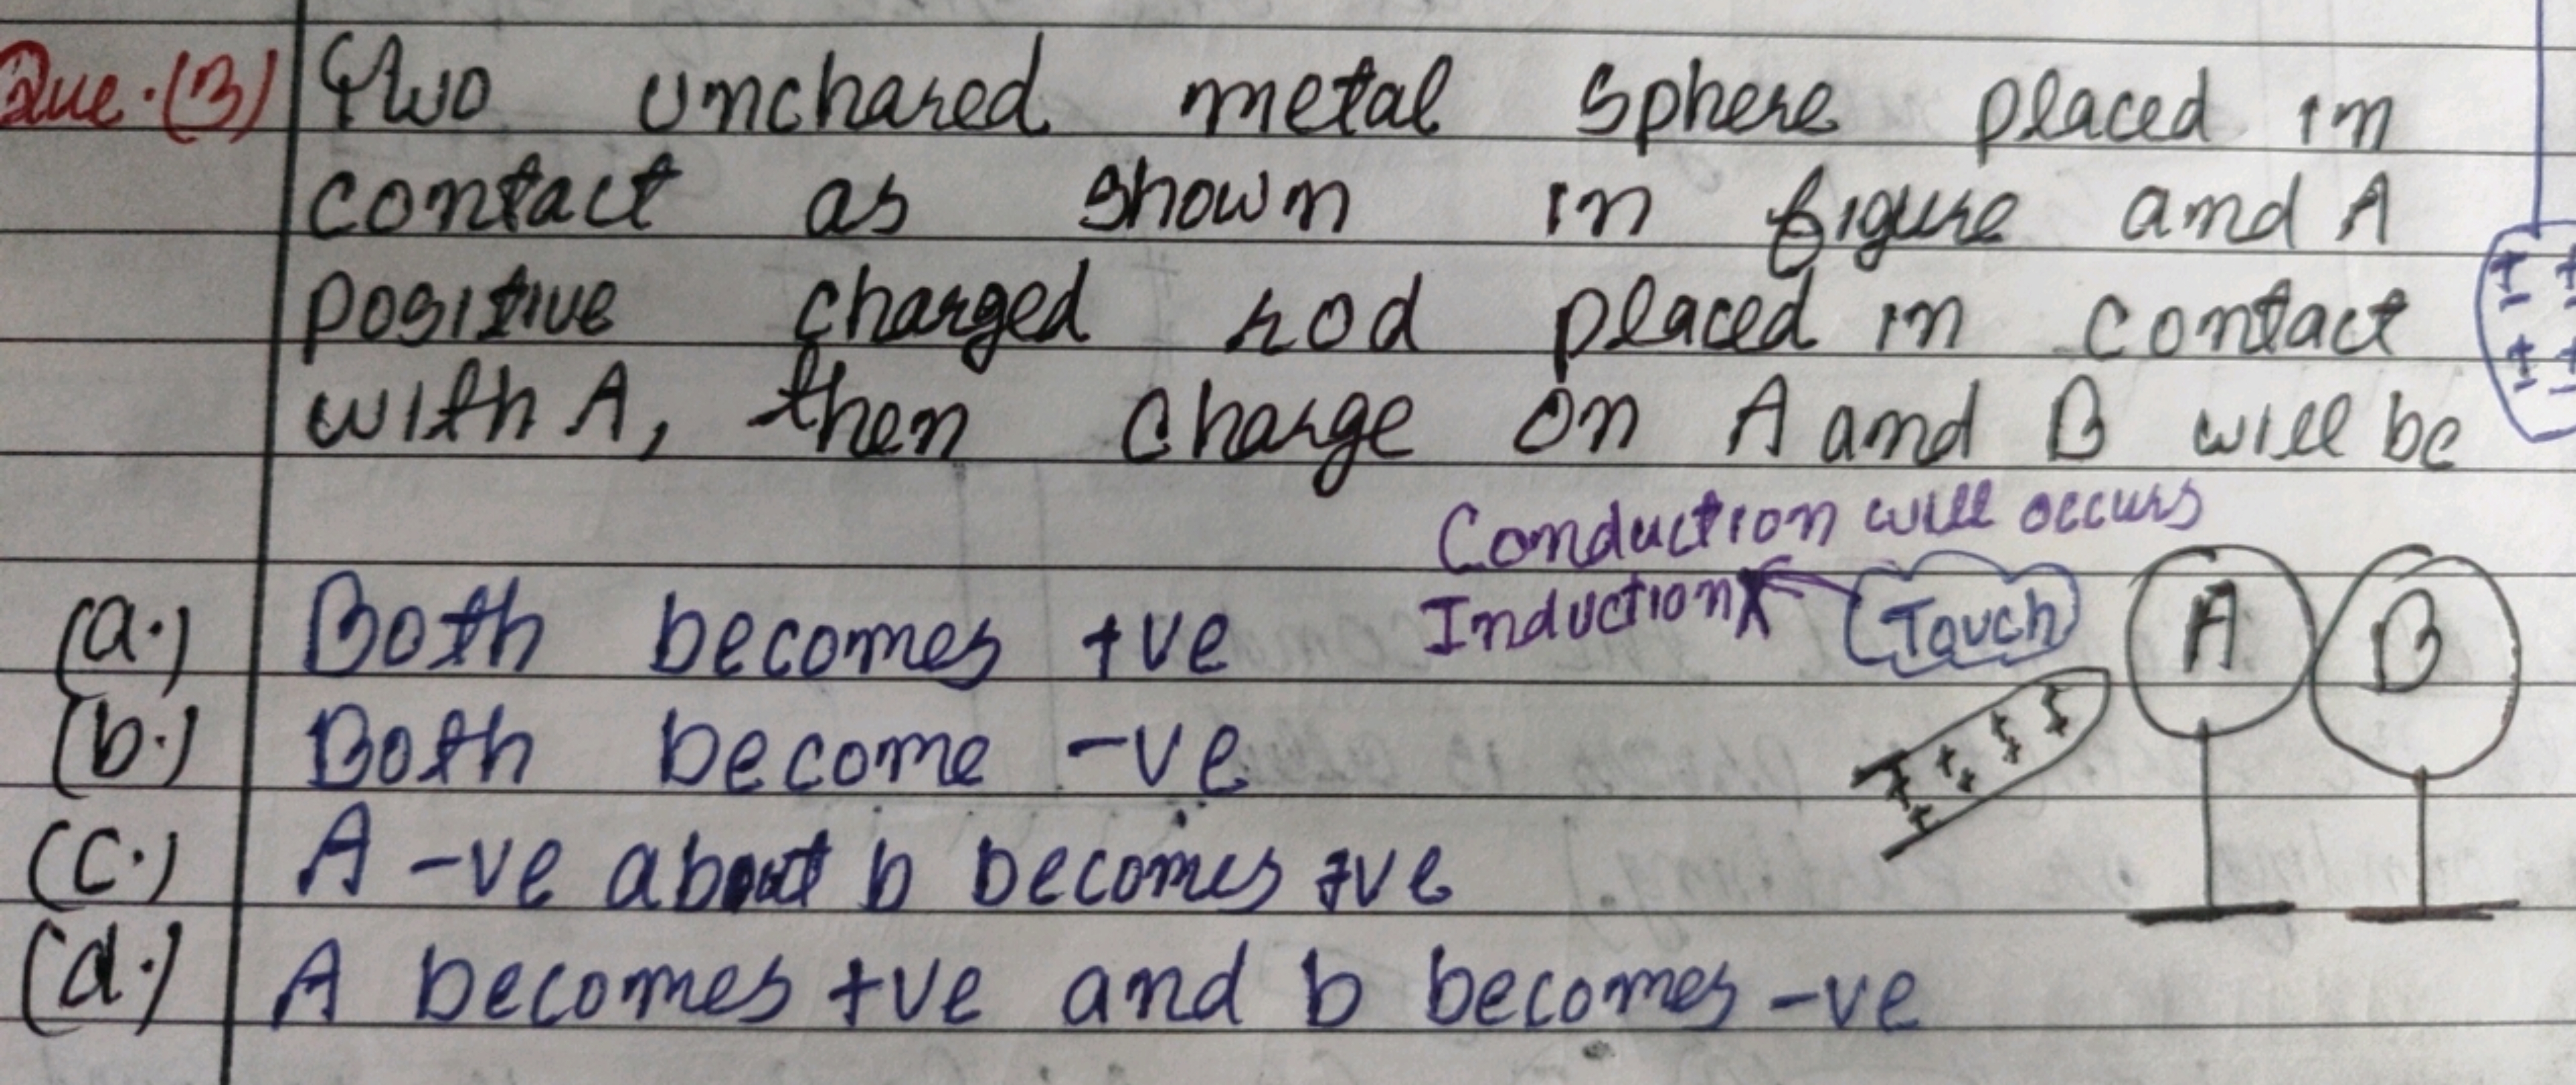 Que.(3) Two unchared metal Sphere placed in
contact as shown in figure and A
positive charged rod placed in contact
with A, then charge on A and B will be
Conduction will occurs
Induction X Touch
(a.) Both becomes +ve
(b.) Both become -ve
(c.) A -ve about b becomes +ve
(d.) A becomes +ve and b becomes -ve
A B
+ + + + + +
+ +
+ +